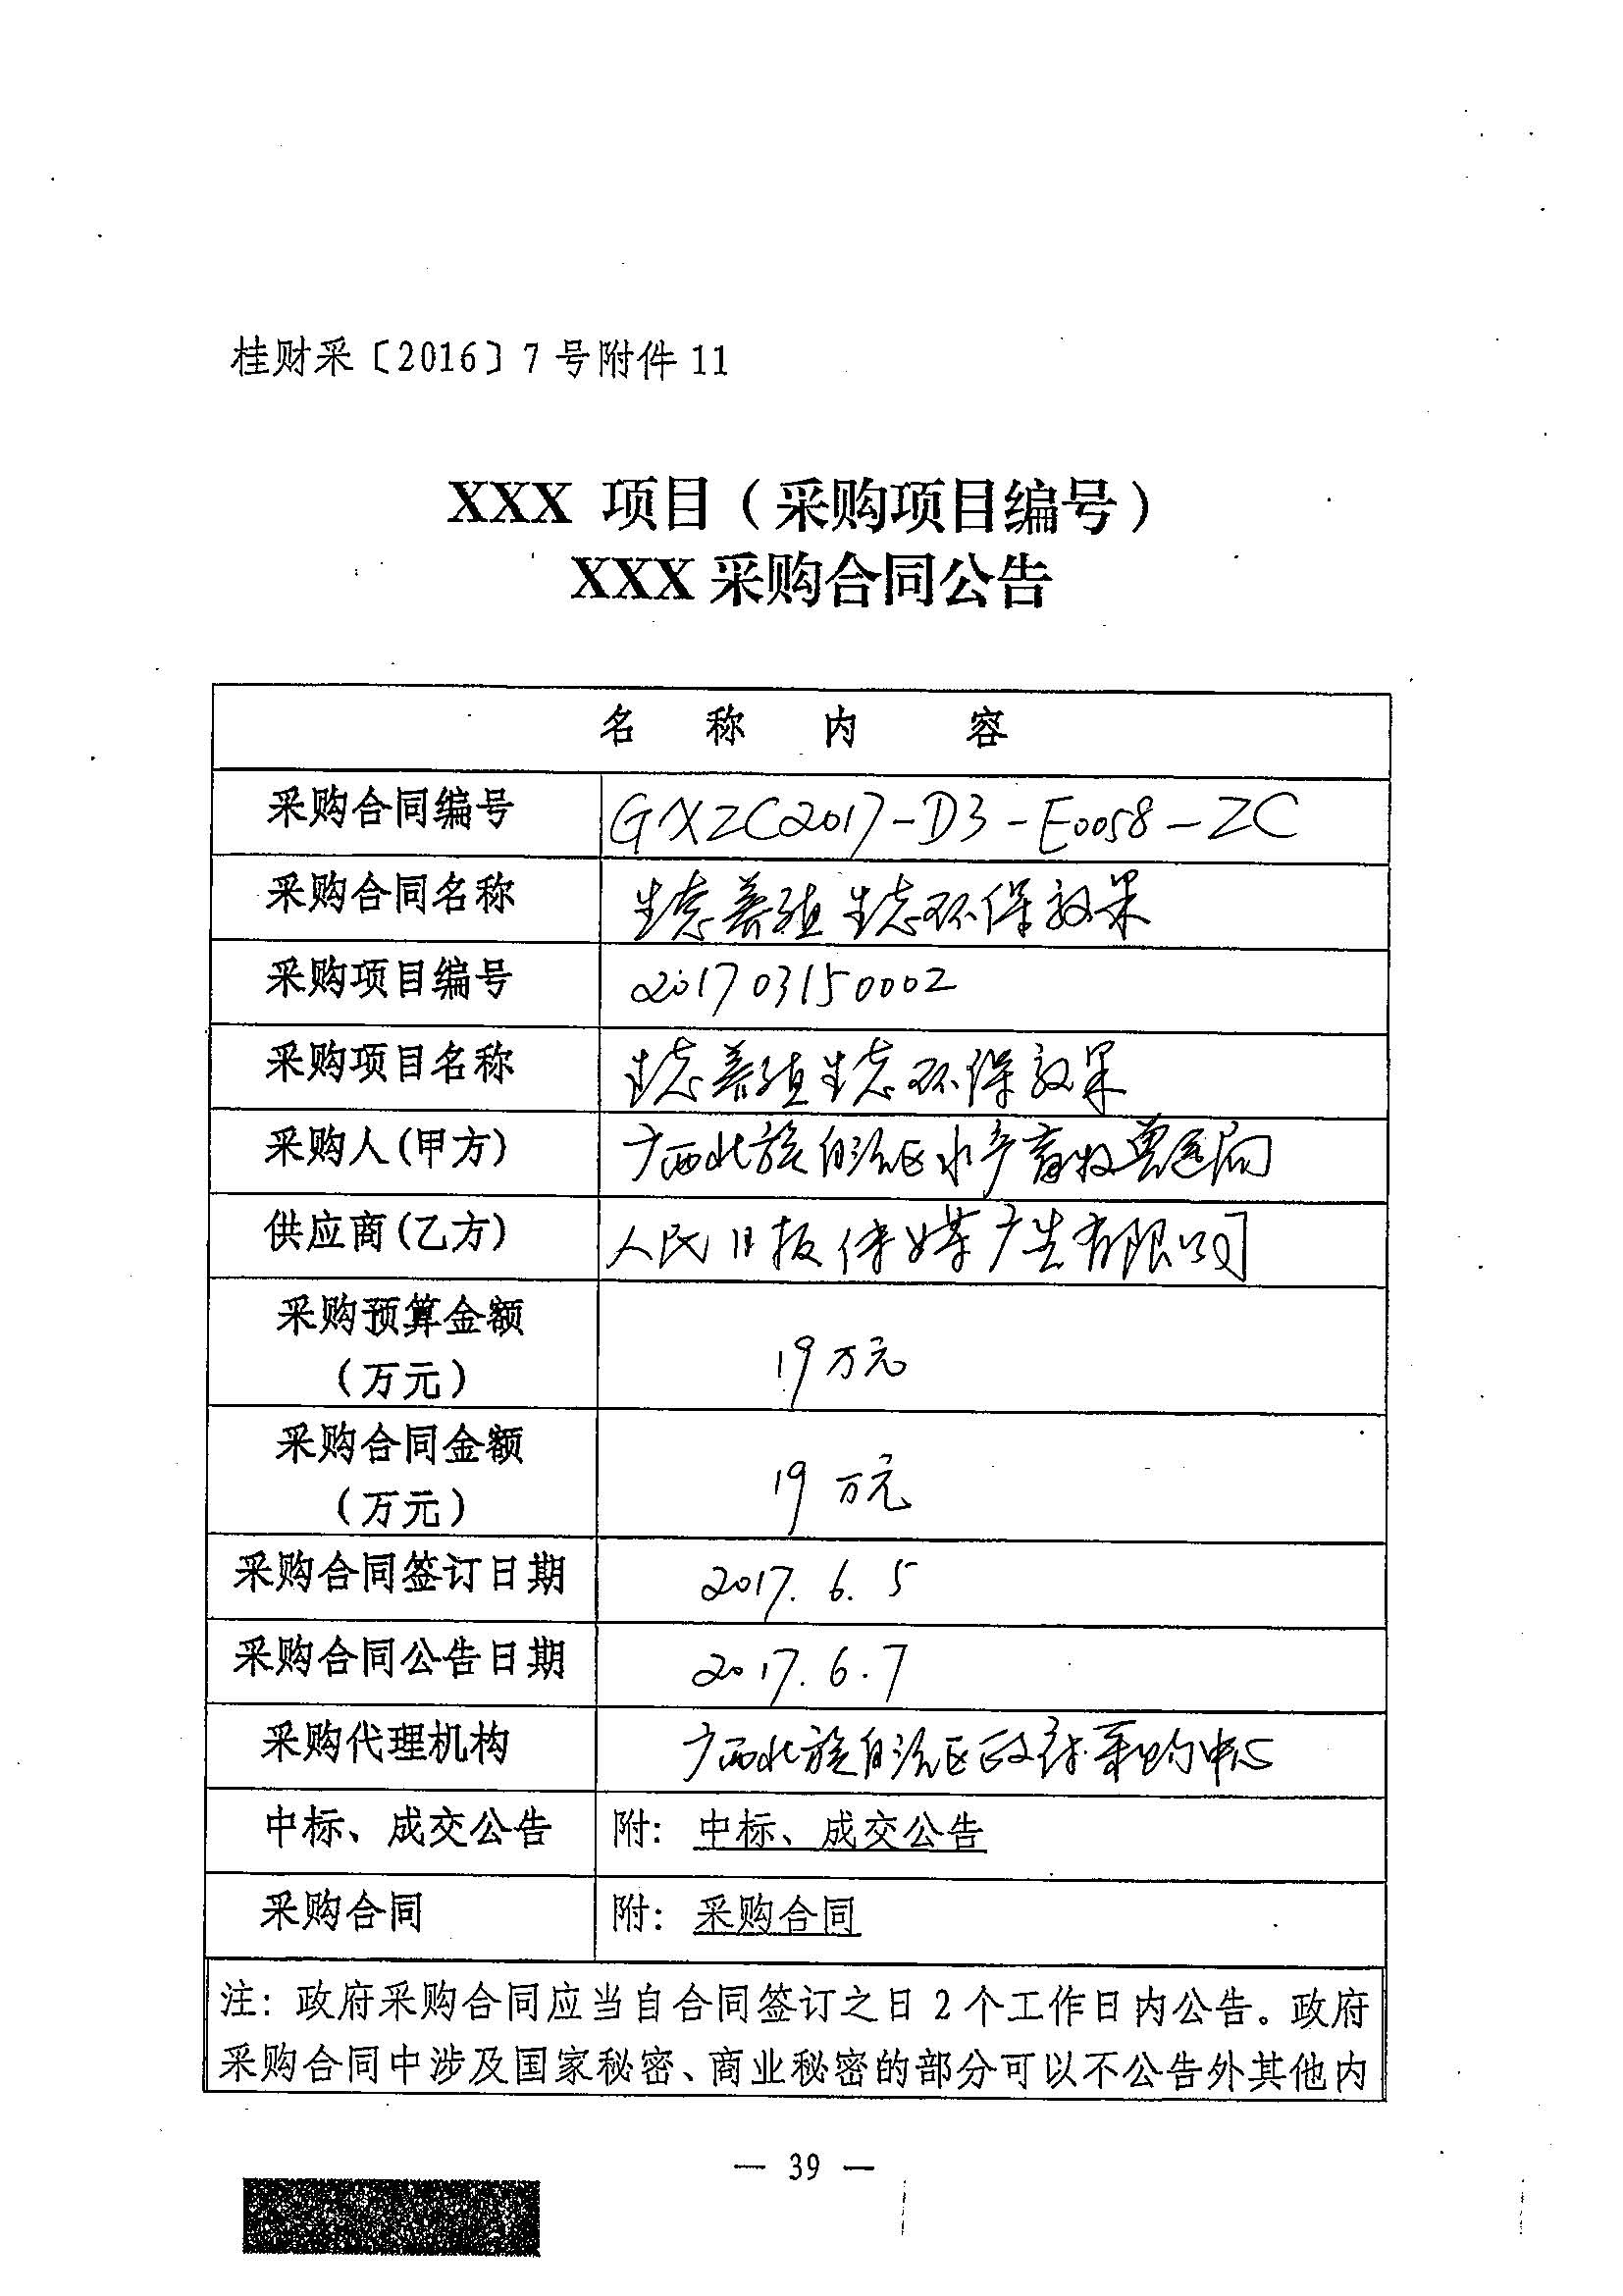 桂财采〔2016〕7号附件11
XXX 项目（采购项目编号）
XXX采购合同公告
名 称 内 容
采购合同编号 GXZC2017-D3-E0058-ZC
采购合同名称 生态养殖生态环保效果
采购项目编号 201703150002
采购项目名称 生态养殖生态环保效果
采购人(甲方) 广西壮族自治区水产畜牧兽医局
供应商(乙方) 人民日报传媒广告有限公司
采购预算金额
（万元） 19万元
采购合同金额
（万元） 19万元
采购合同签订日期 2017.6.5
采购合同公告日期 2017.6.7
采购代理机构 广西壮族自治区政府采购中心
中标、成交公告 附：中标、成交公告
采购合同 附：采购合同
注：政府采购合同应当自合同签订之日2个工作日内公告。政府
采购合同中涉及国家秘密、商业秘密的部分可以不公告外其他内
— 39 —